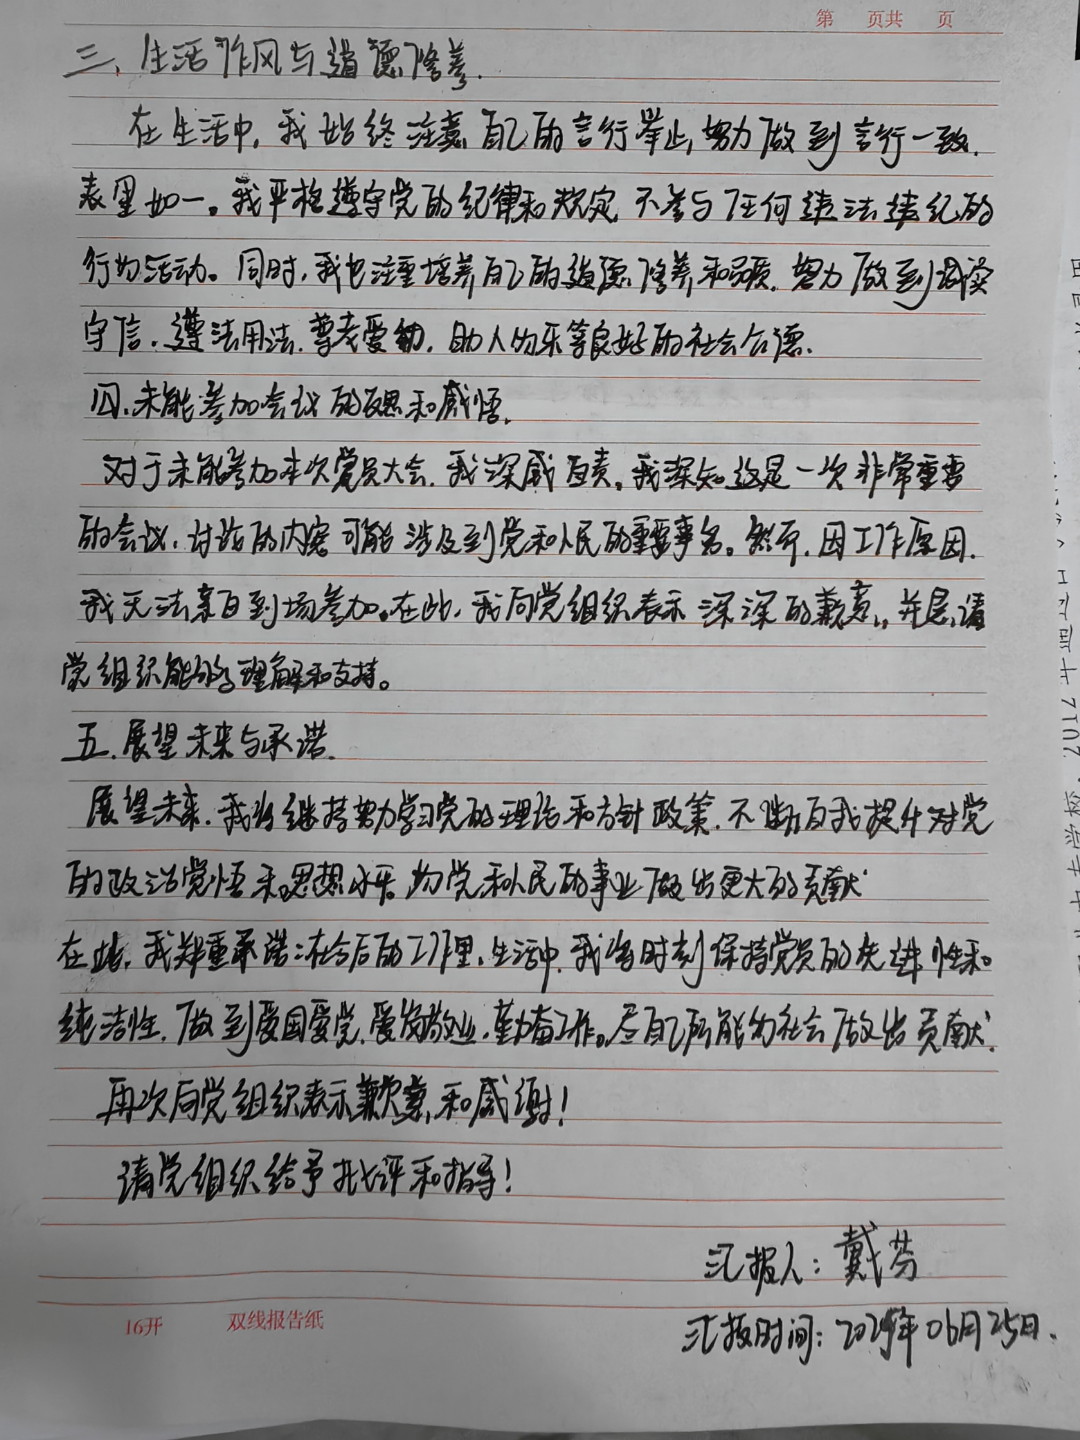 第 页共 页
三、生活作风与道德修养.
在生活中,我始终注意自己的言行举止,努力做到言行一致.
表里如一。我严格遵守党的纪律和规定,不参与任何违法违纪的
行为活动。同时,我也注重培养自己的道德修养和品质.努力做到诚实
守信.遵法用法.尊老爱幼,助人为乐等良好的社会公德.
四.未能参加会议的反思和感悟.
对于未能参加本次党员大会.我深感自责。我深知这是一次非常重要
的会议.讨论的内容可能涉及到党和人民的重要事务。然而,因工作原因.
我无法亲自到场参加。在此,我向党组织表示深深的歉意,并恳请
党组织能够理解和支持。
五.展望未来与承诺.
展望未来.我将继持努力学习党的理论和方针政策.不断自我提升对党
的政治觉悟和思想水平.为党和人民的事业做出更大的贡献.
在此,我郑重承诺:在今后的工作里,生活中.我当时刻保持党员的先进性和
纯洁性.做到爱国爱党.爱岗敬业.勤奋工作。尽自己所能为社会做出贡献.
再次向党组织表示歉意和感谢!
请党组织给予批评和指导!
汇报人:戴芬
汇报时间: 06月25日.
16开 双线报告纸